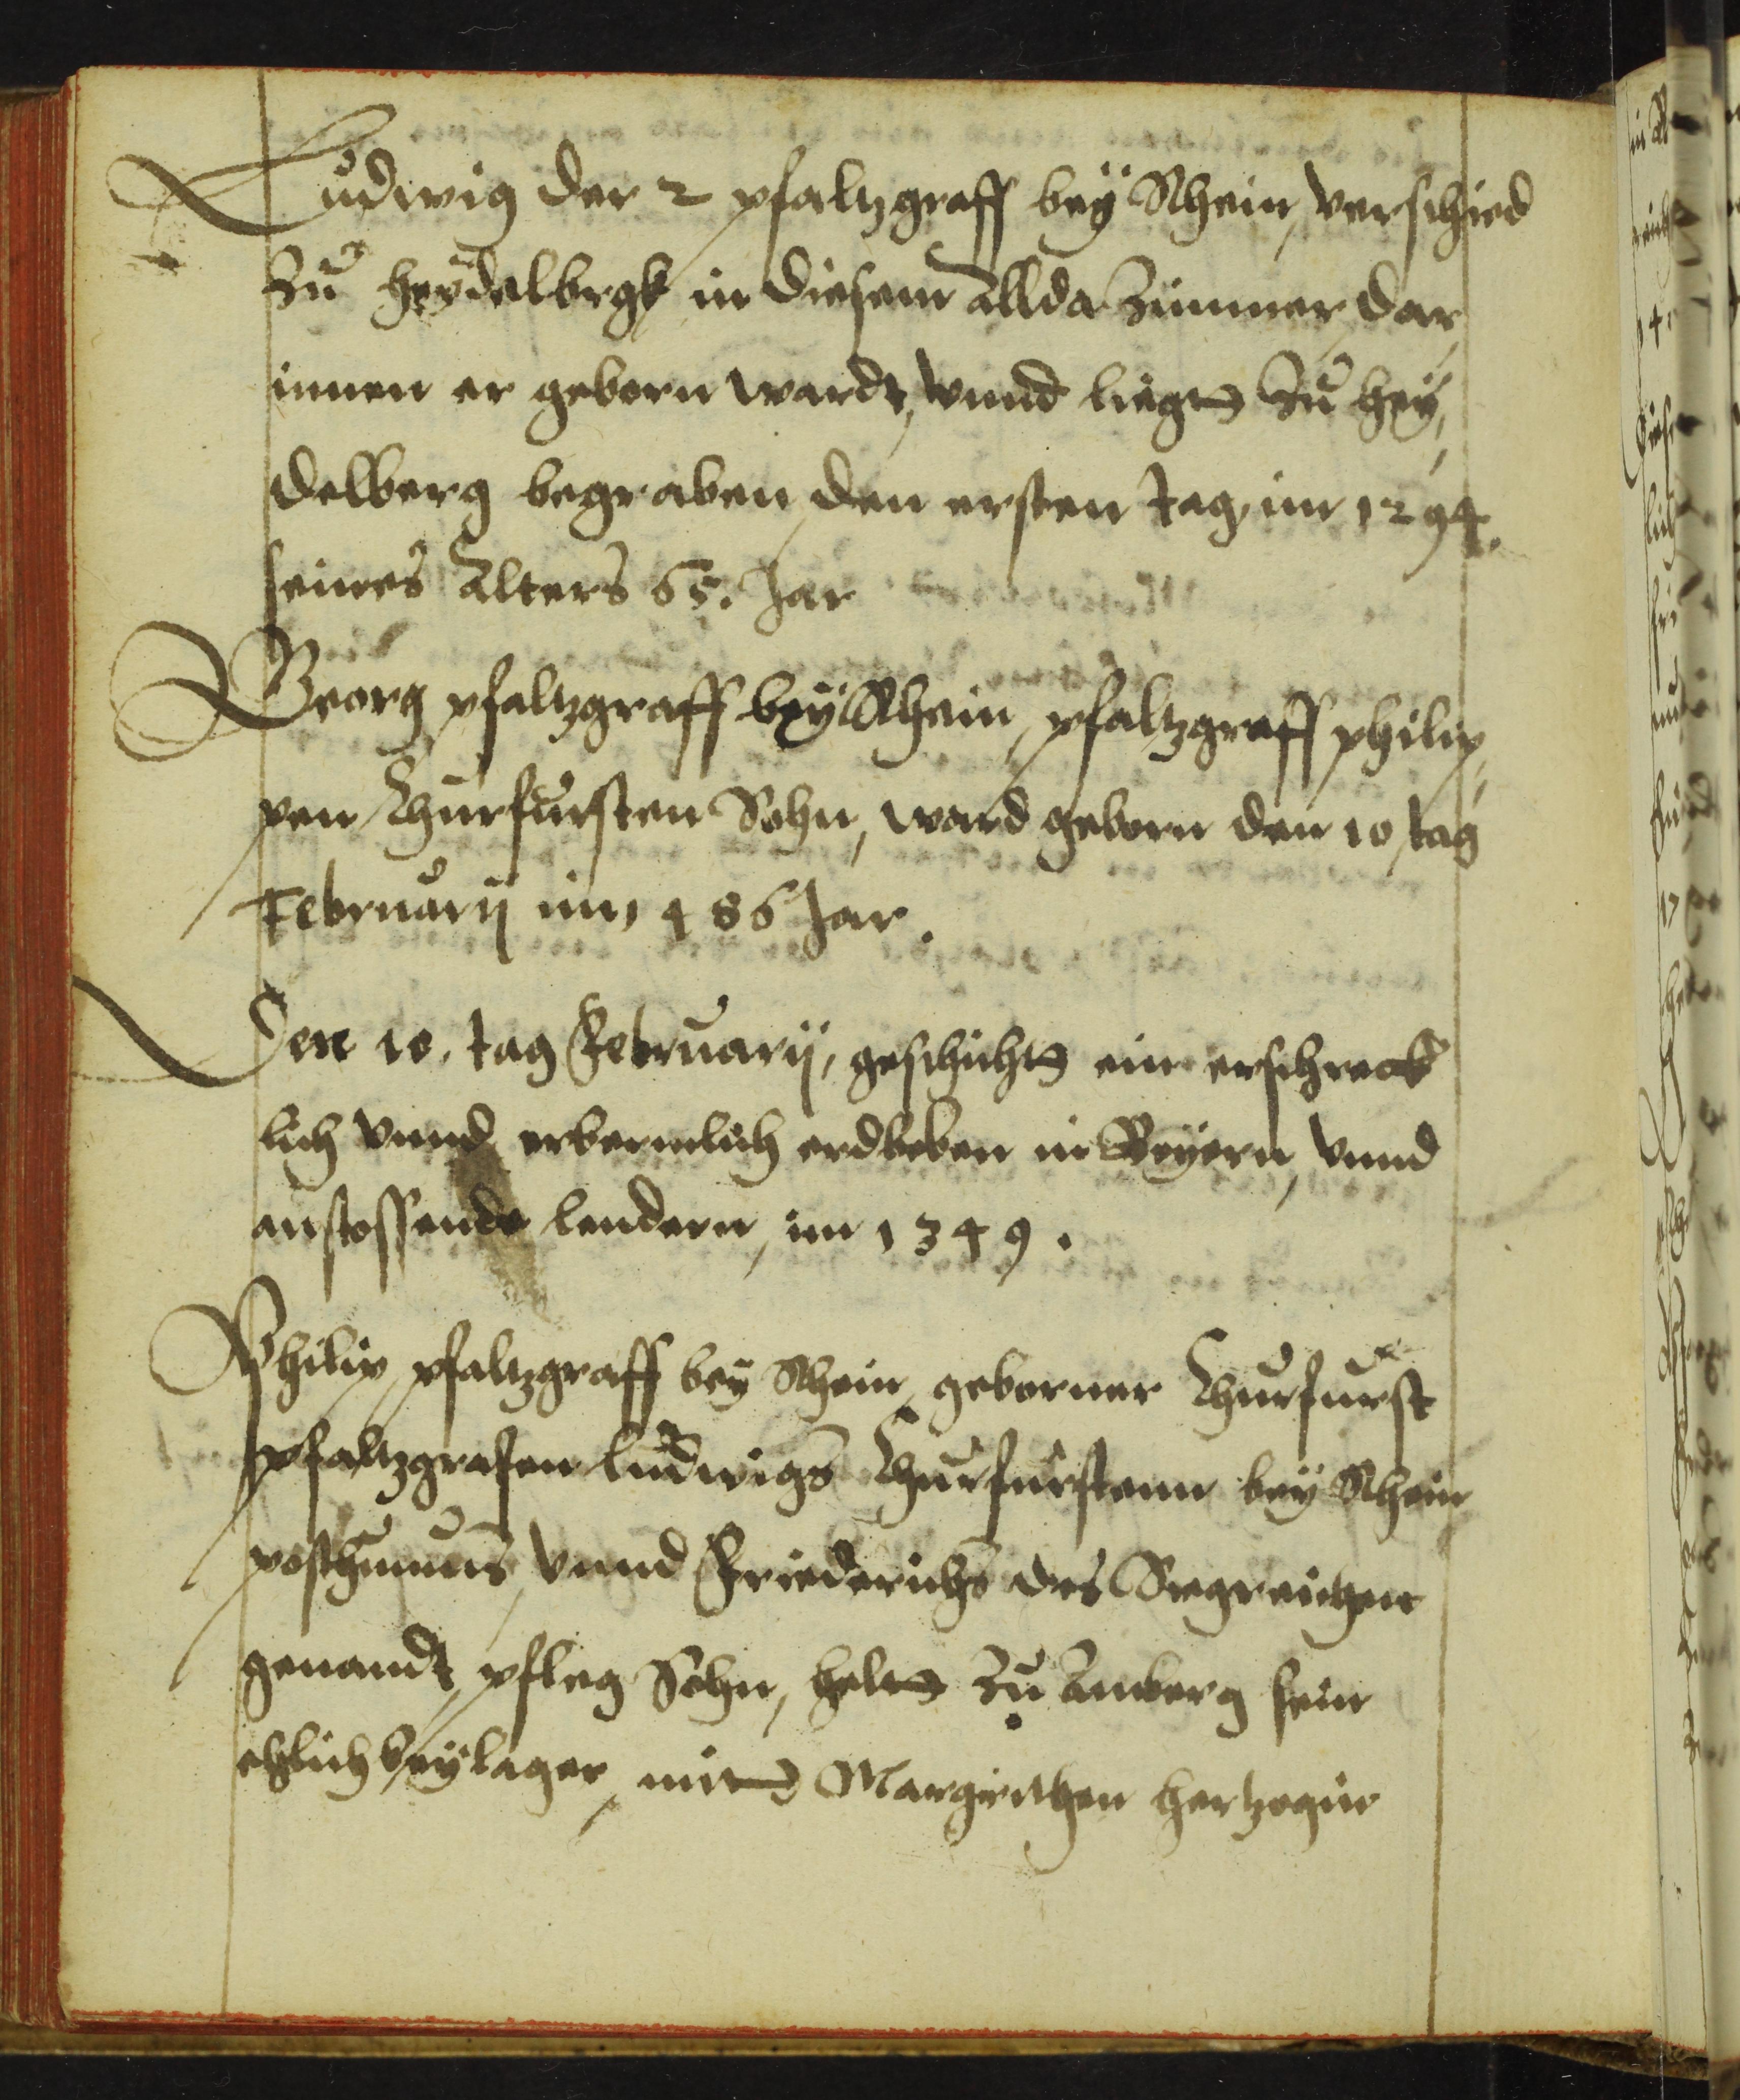 Ludwig der 2 pfaltzgraff beÿ Rhein, verschied
Zu heÿdelbrgk in diesem allda Zimmer, dar,
innen er geborn wardt, vnnd liegtt Zu heÿ,
delberg begraben, den ersten tag, im 1294.
seines alters 65. Jar
Georg pfaltzgraff beÿ Rhein, pfaltzgraff philip,
pen Churfursten Sohn, ward geborn den 10 tag
Februarij im 1486 Jar.
Den 10. tag Februarij, geschichtt ein erschreck
lich vnnd erbermlich erdbeben in Beÿern, vnnd
anstossende lendern, im 1349.
Philip, pfaltzgraff beÿ Rhein, geborner Churfurst
pfaltzgrafen Ludwigs Churfurstenn beÿ Rhein
posthumus, vnnd Friederichs des Siegreichen
genandt, pfleg Sohn, heltt Zu Amberg sein
ehlich beÿlager, mitt Margrethen hertzogin